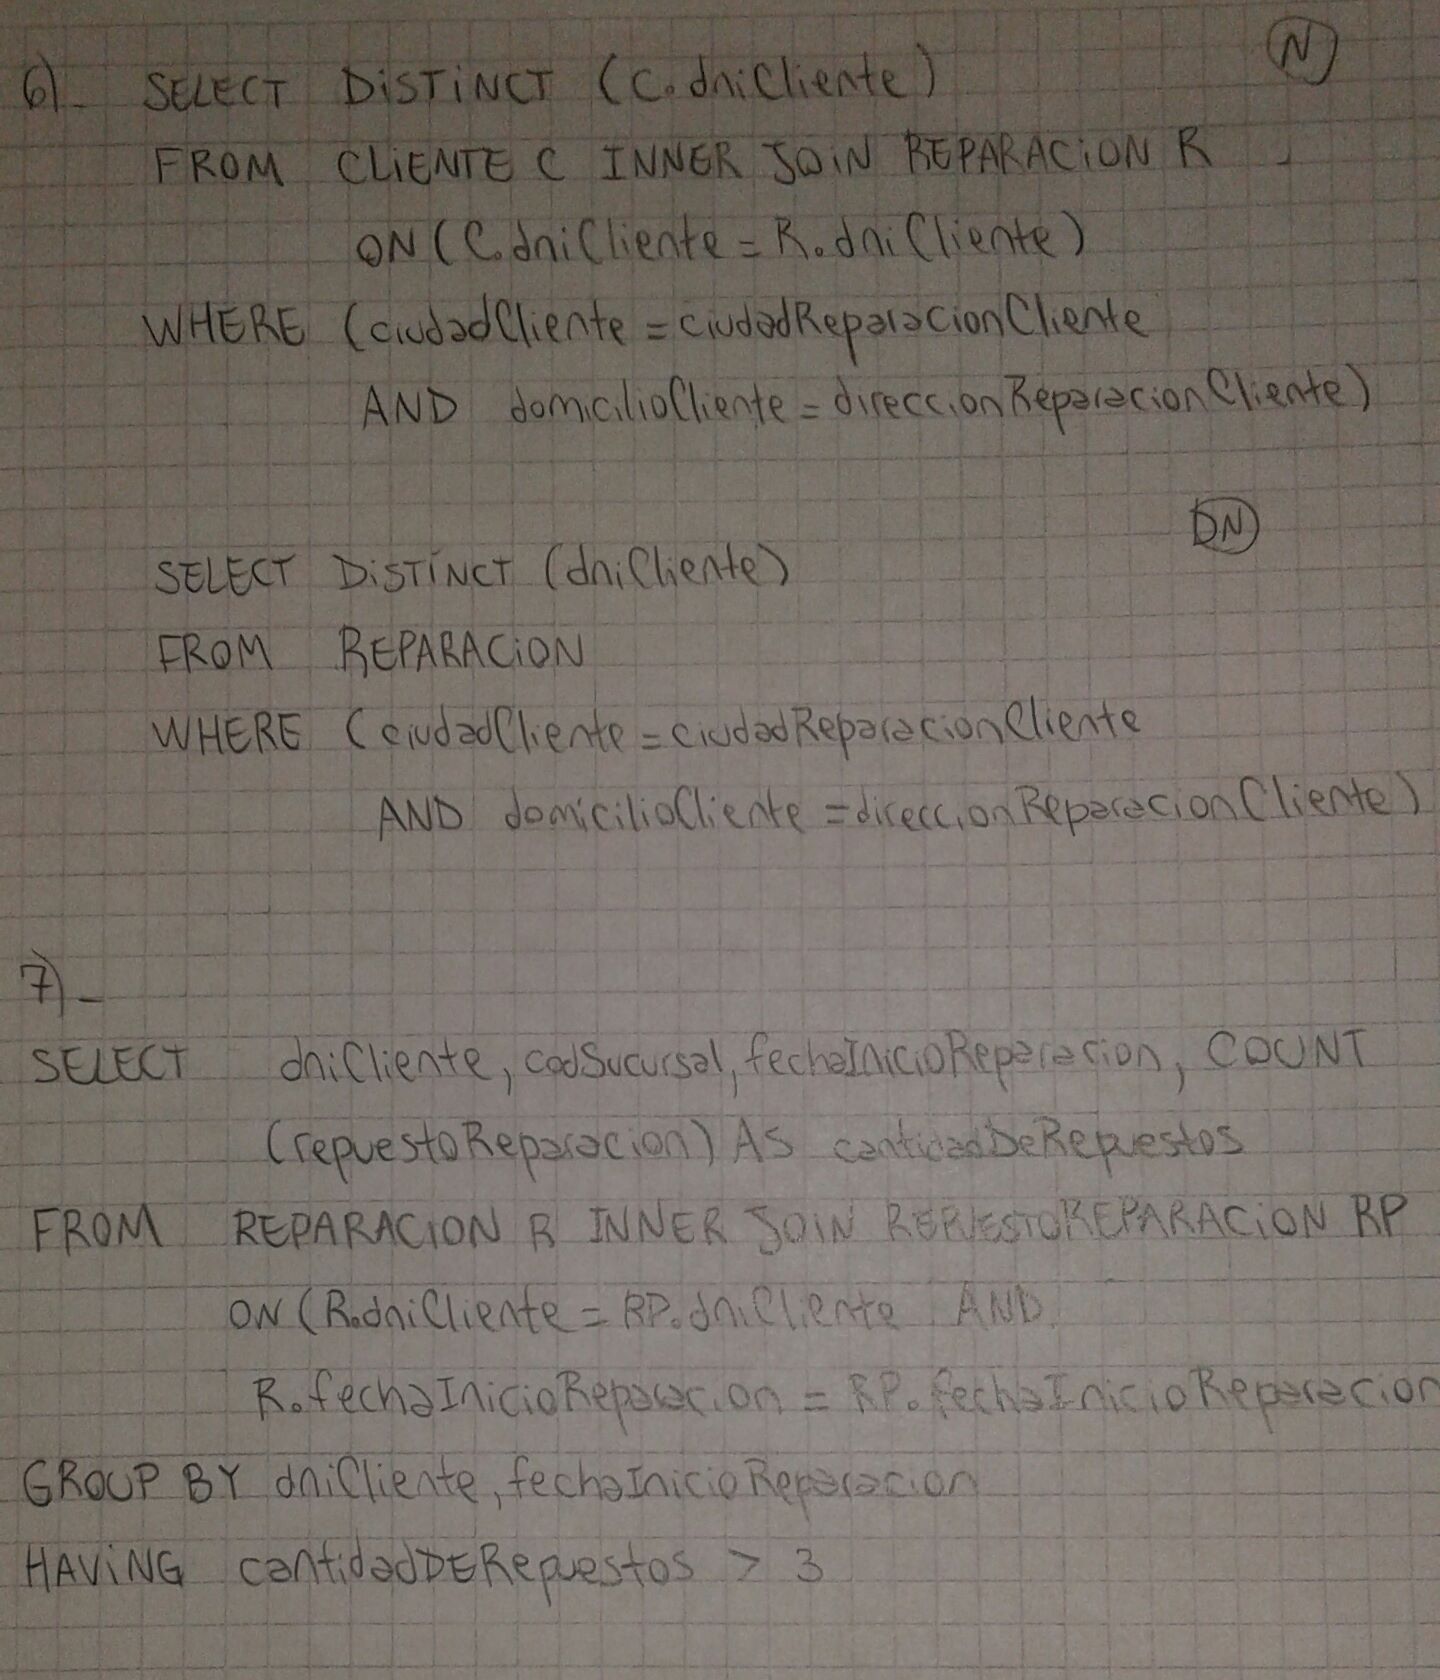 6)- SELECT DISTINCT (C.dniCliente) N
FROM CLIENTE C INNER JOIN REPARACION R
ON (C.dniCliente = R.dniCliente)
WHERE (ciudadCliente = ciudadReparacionCliente
AND domicilioCliente = direccionReparacionCliente)
DN
SELECT DISTINCT (dniCliente)
FROM REPARACION
WHERE (ciudadCliente = ciudadReparacionCliente
AND domicilioCliente = direccionReparacionCliente)
7)-
SELECT dniCliente, codSucursal, fechaInicioReparacion, COUNT
(repuestoReparacion) AS cantidadDeRepuestos
FROM REPARACION R INNER JOIN REPUESTOREPARACION RP
ON (R.dniCliente = RP.dniCliente AND
R.fechaInicioReparacion = RP.fechaInicioReparacion
GROUP BY dniCliente, fechaInicioReparacion
HAVING cantidadDERepuestos > 3